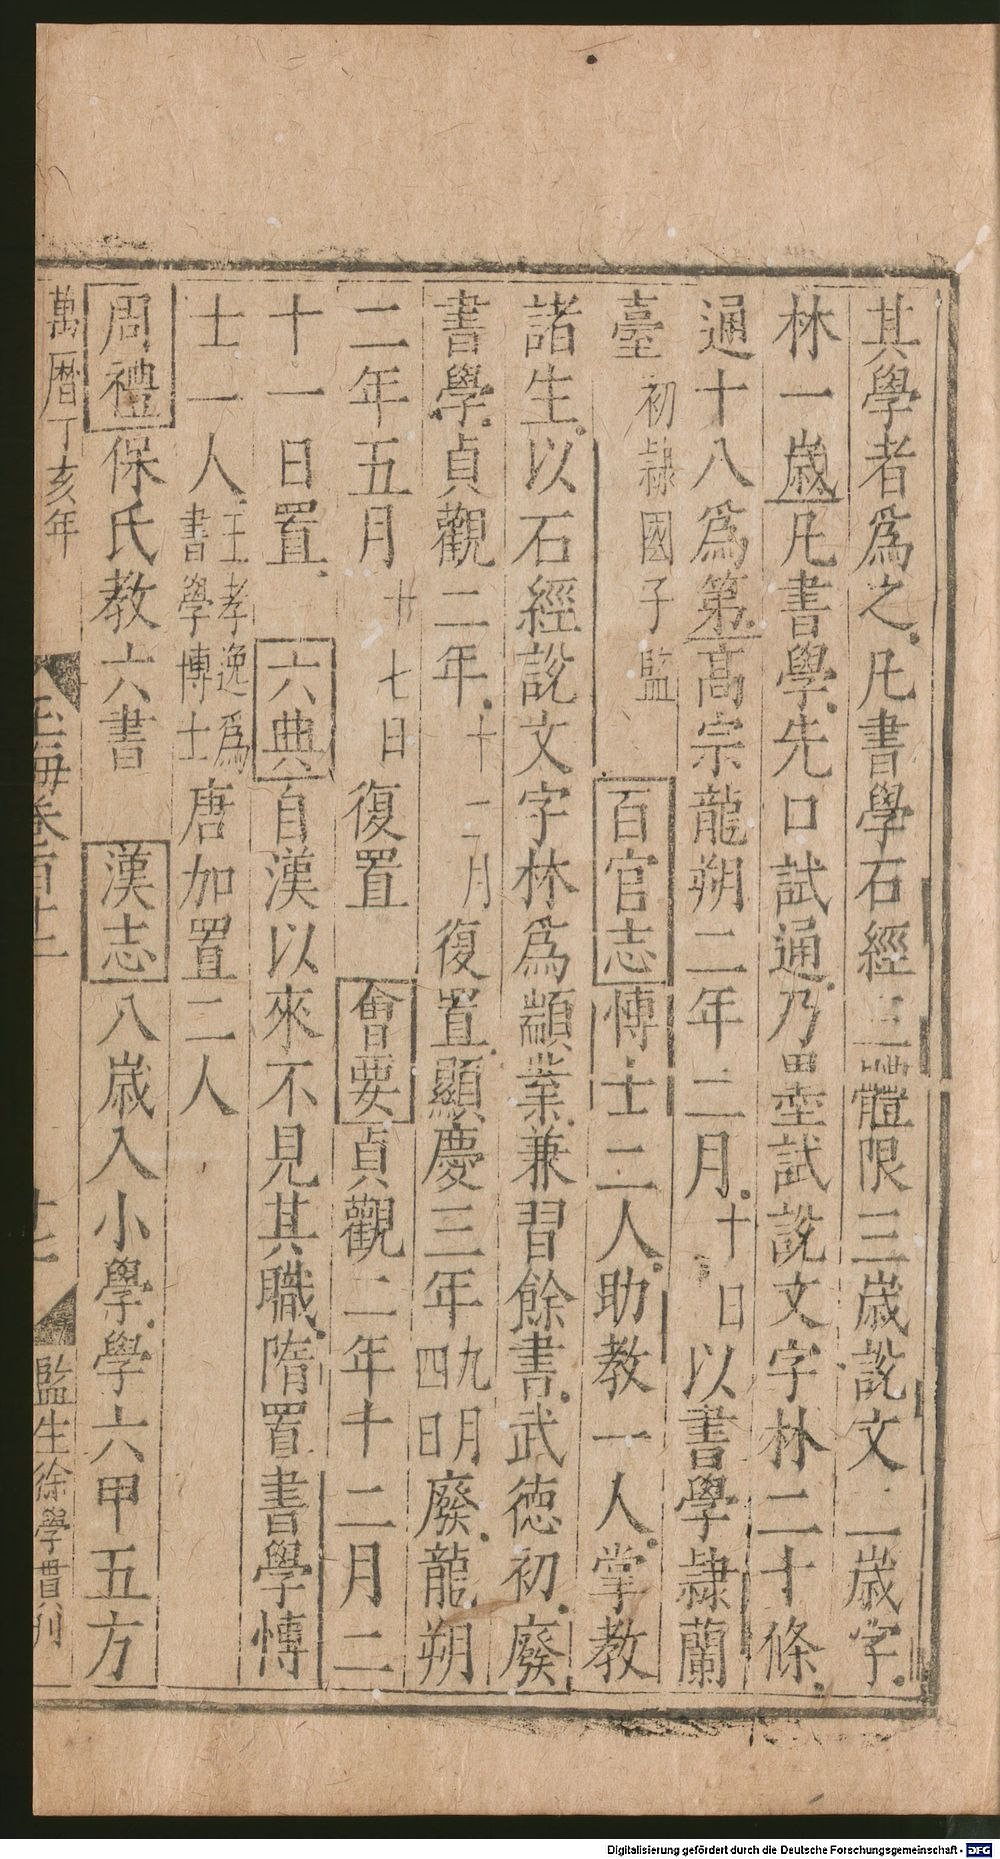 其學者爲之凡書學石經三體限三歲說文二歲字
林一歲凡書學先口試通乃墨試說文字林二十條
通十八爲第高宗龍朔二年二月十日以書學隷蘭
臺初隷國子監百官志博士二人助教一人掌教
諸生以石經說文字林爲顓業兼習餘書武德初廢
書學貞觀二年十二月復置顯慶三年九月四日廢龍朔
二年五月廿七日復置會要貞觀二年十二月二
十一日置六典自漢以來不見其職隋置書學博
士一人王孝逸爲書學博士唐加置二人
周禮保氏教六書漢志八歲入小學學六甲五方
萬曆丁亥年 玉海卷百十二 十七 監生徐學貫刊
Digitalisierung gefördert durch die Deutsche Forschungsgemeinschaft - DFG